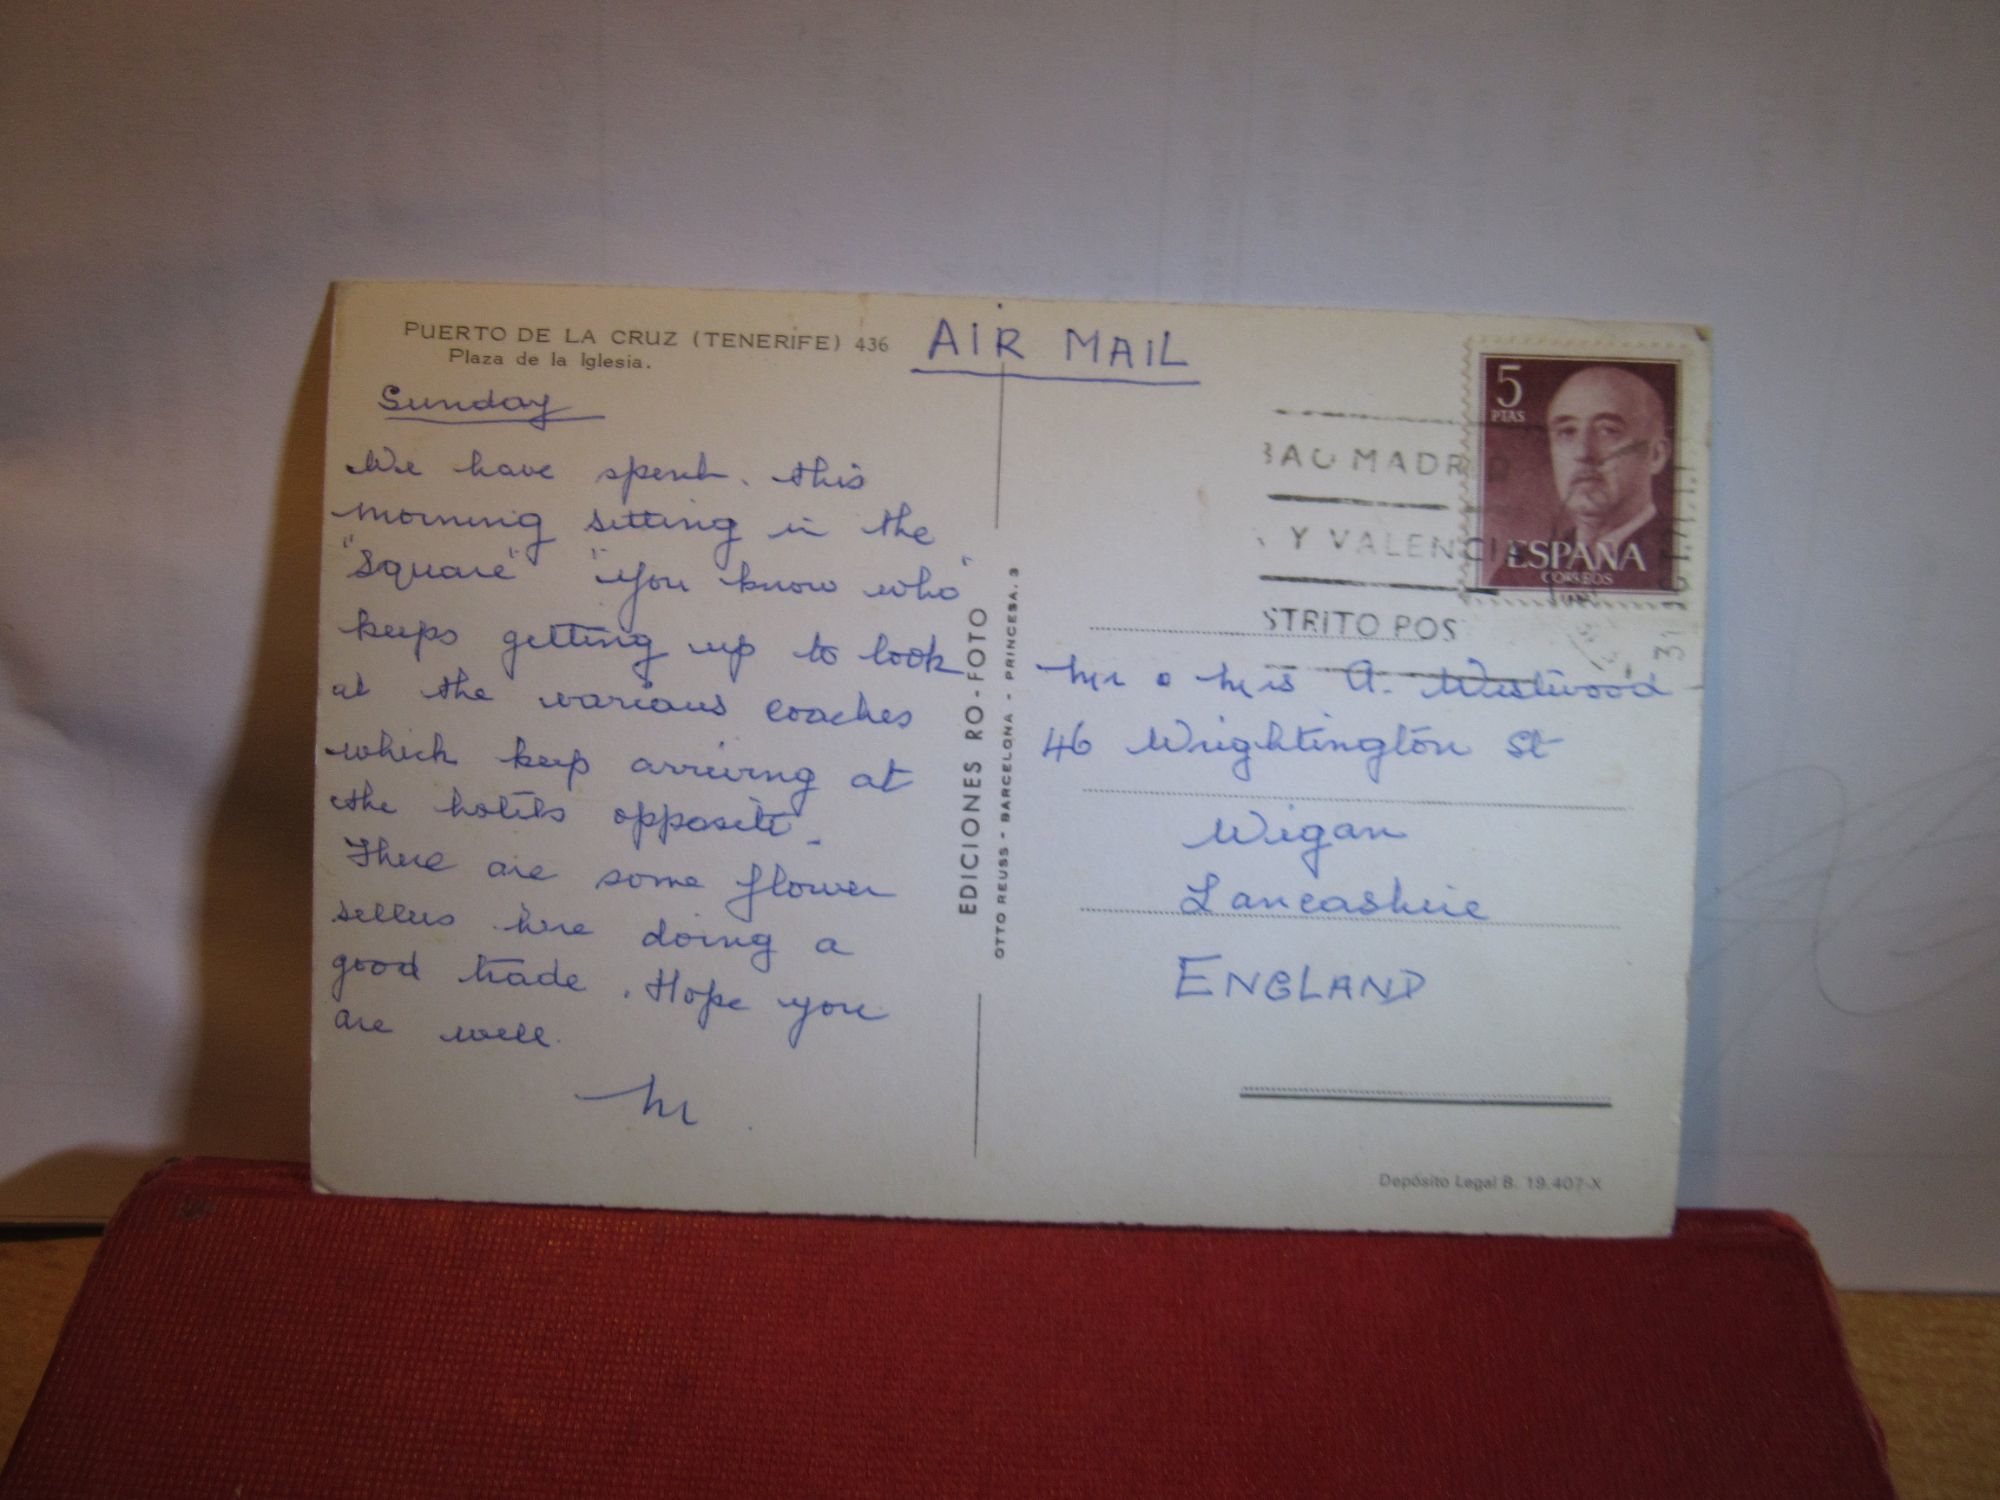 PUERTO DE LA CRUZ (TENERIFE) 436
Plaza de la Iglesia.
AIR MAIL
Sunday
We have spent this
morning sitting in the
"Square" "You know who"
keeps getting up to look
at the various coaches
which keep arriving at
the hotels opposite.
There are some flower
sellers here doing a
good trade. Hope you
are well.
M
EDICIONES RO-FOTO
OTTO REUSS - BARCELONA - PRINCESA. 3
5
PTAS
ESPAÑA
CORREOS
BAO MADRID
Y VALENCIA
STRITO POS
Mr & Mrs A. Westwood
46 Wrightington St
Wigan
Lancashire
ENGLAND
Depósito Legal B. 19.407-X